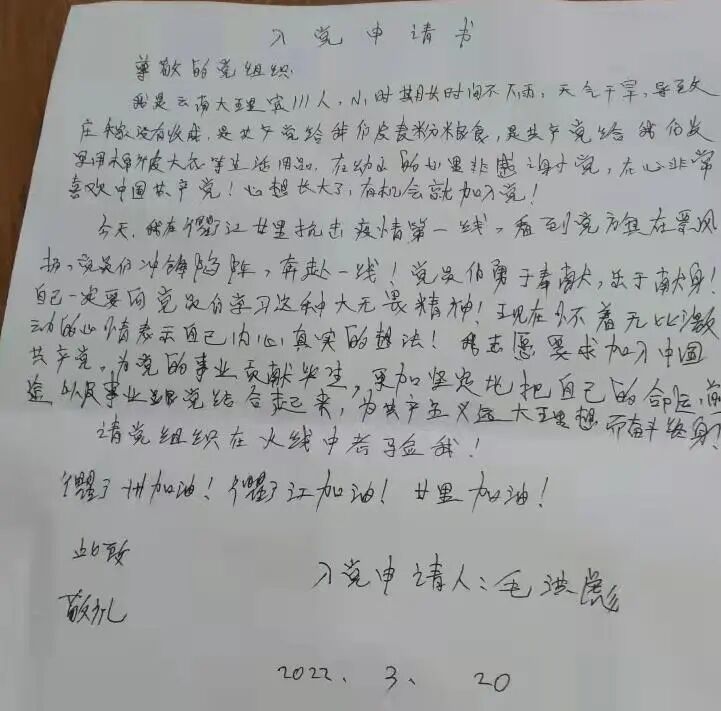 入党申请书
尊敬的党组织:
我是云南大理宾川人,小时候长时间不下雨,天气干旱,导致
庄稼没有收成,是共产党给我们发救济粮食,是共产党给我们发
棉被大衣等生活用品.在幼小的心里非常感谢党,在心非常
喜欢中国共产党!心想长大了,有机会就加入党!
今天,我在瑞丽江女里抗击疫情第一线,看到党旗在飘
扬,党员们冲锋陷阵,奔赴一线!党员们勇于奉献,乐于献身!
自己一定要向党员们学习这种大无畏精神!现在怀着无比激
动的心情表示自己内心真实的想法!我志愿要求加入中国
共产党,为党的事业贡献毕生,更加坚定地把自己的命运,前
途以及事业跟党结合起来,为共产主义远大理想而奋斗终身!
请党组织在火线中考验我!
加油!江加油!女里加油!
此致
敬礼
入党申请人:毛
2022、3、20